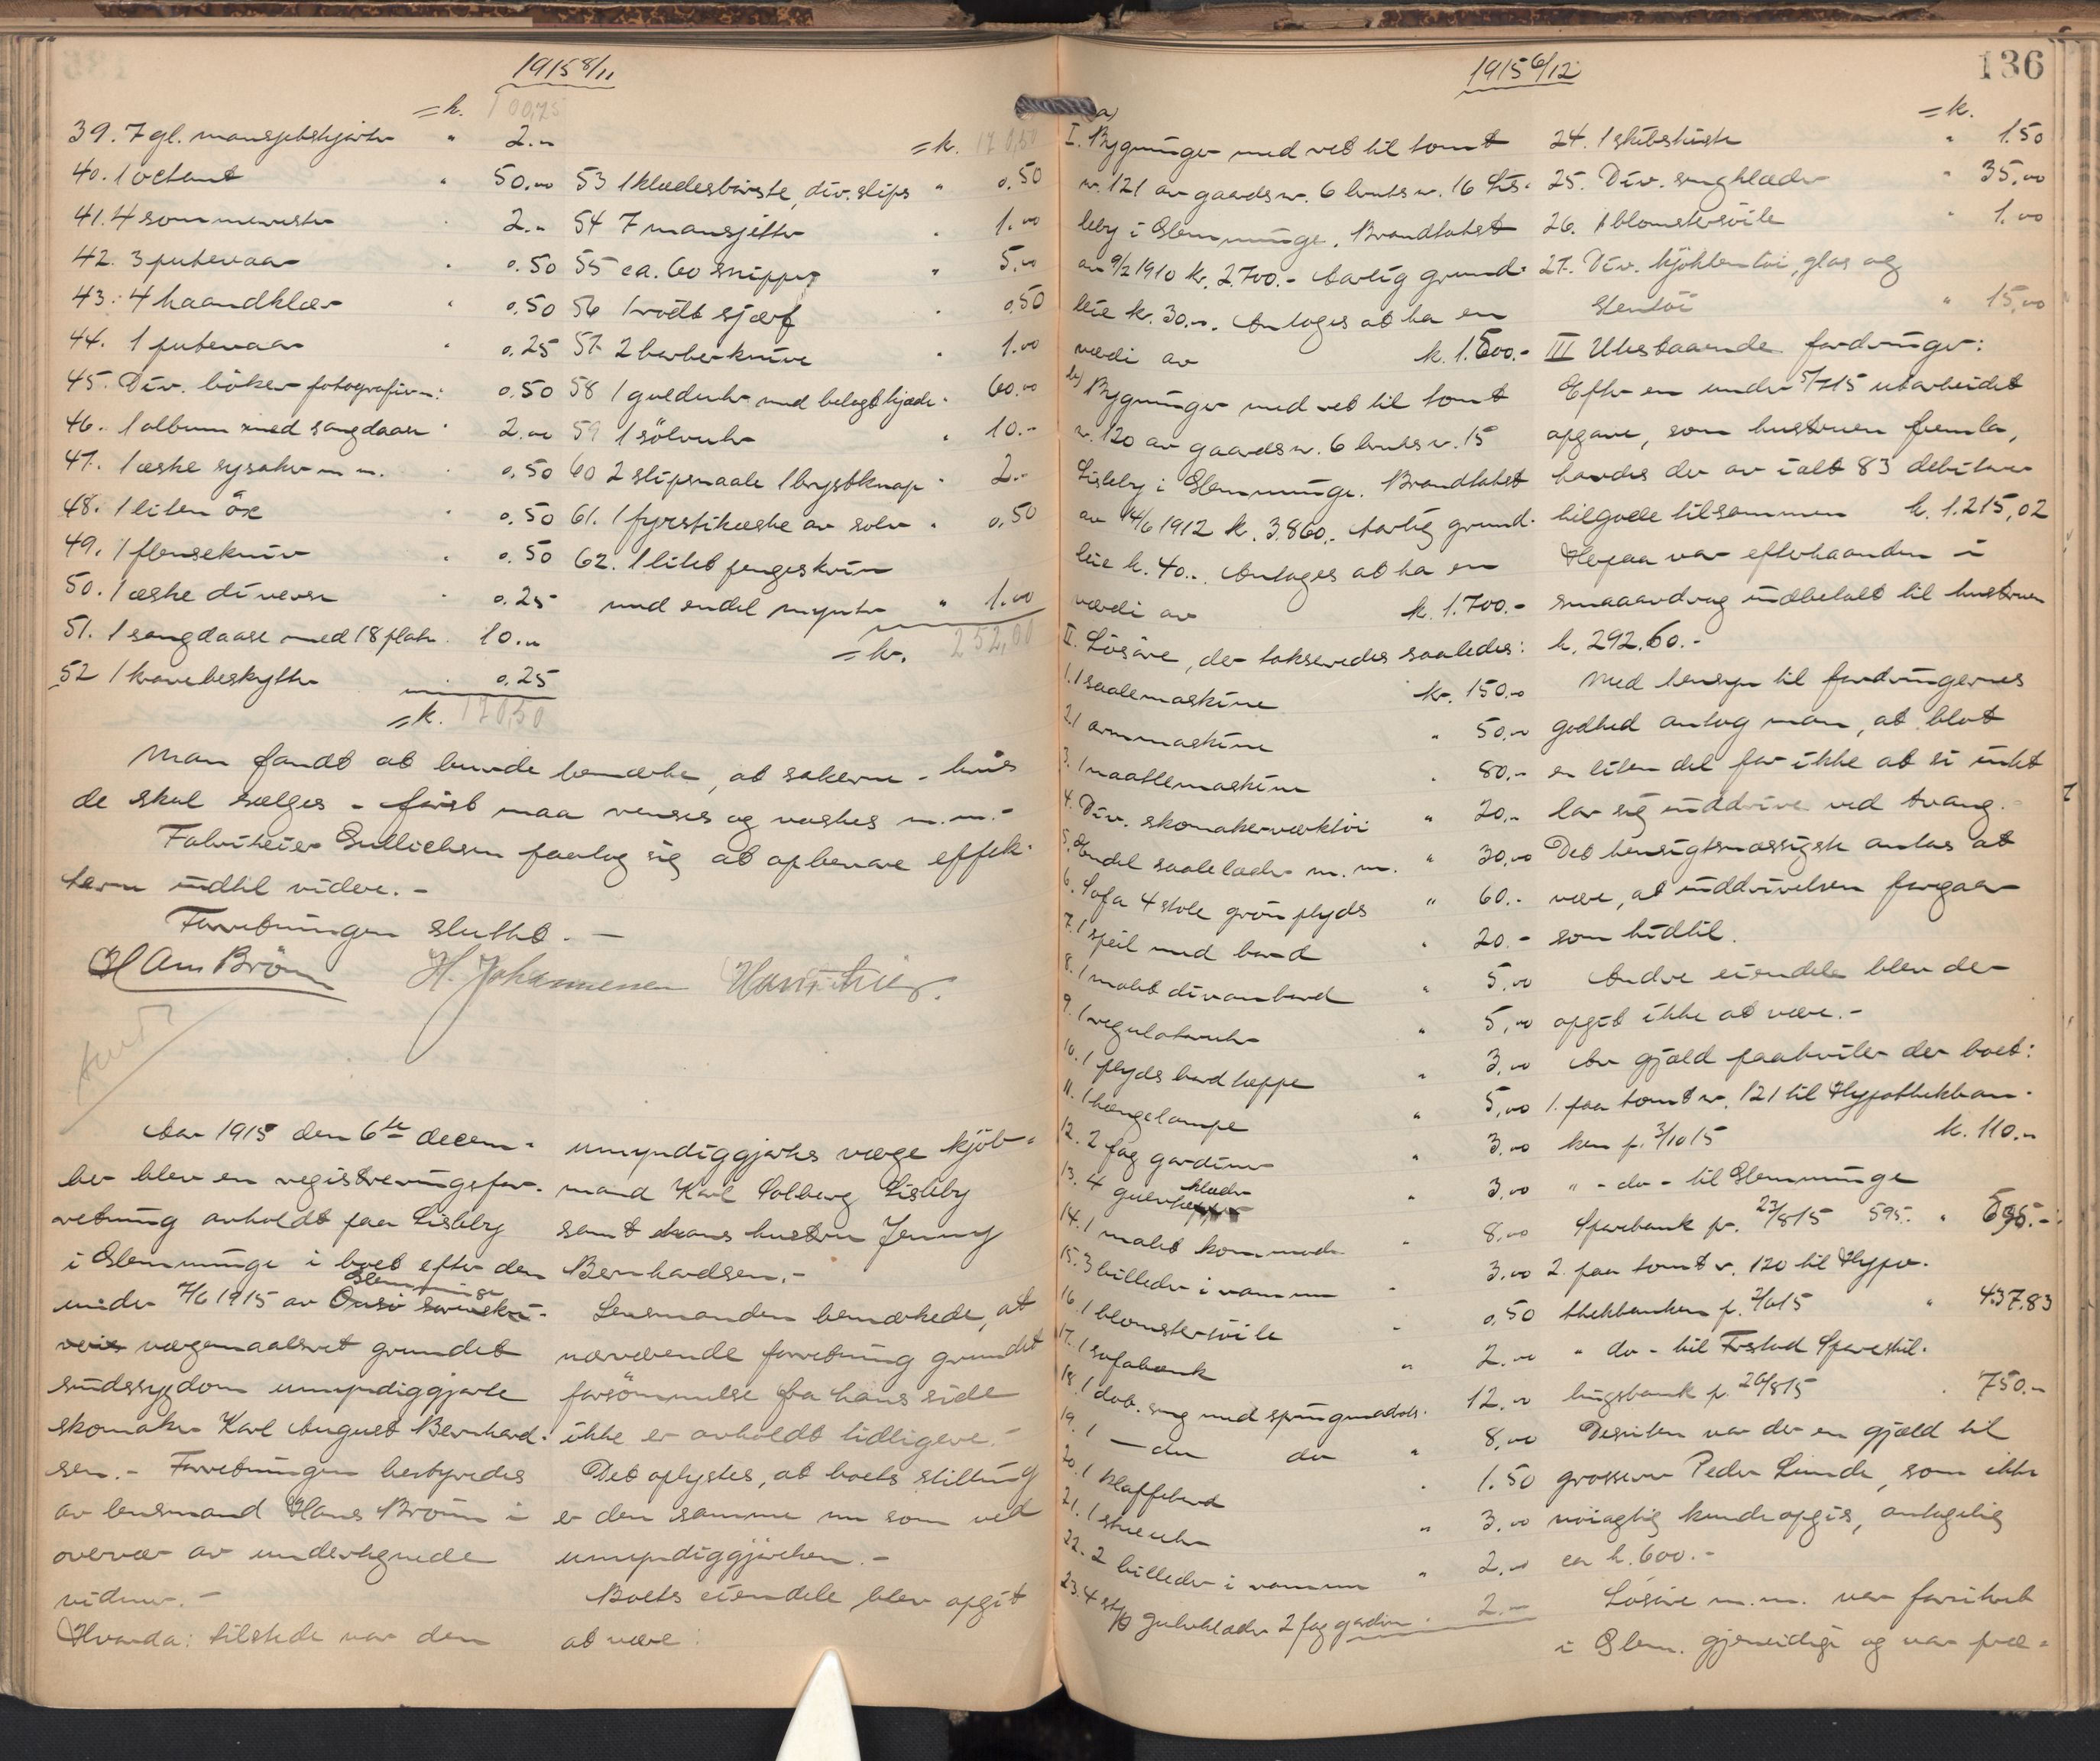 1915 8/11
= k. 100,75
39. 7 gl. mansjetskjorter " 2.-
40. 1 octant " 50.00
41. 4 sommervester " 2.-
42. 3 putevaar " 0.50
43. 4 haandklær " 0.50
44. 1 putevaar " 0.25
45. Div. böker fotografier m: 0.50
46. 1 album med sangdaase " 2.00
47. 1 æske sysaker m m. " 0.50
48. 1 liten öx " 0.50
49. 1 flensekniv " 0.50
50. 1 æske diverse " 0.25
51. 1 sangdaase med 18 plater. 10.00
52 1 kravebeskytter " 0.25
= k. 170,50
= k. 170,50
53 1 klædesbörste, div. slips " 0.50
54 7 mansjetter " 1.00
55 ca. 60 snipper " 5.00
56 1 rödt sjærf " 0,50
57. 2 barberknive " 1.00
58 1 gulduhr med belagt kjæde " 60.00
59 1 sölvuhr " 10.-
60 2 slipsnaale 1 brystknap " 2.-
61. 1 fyrstikæske av sölv " 0,50
62. 1 litet pengeskrin
med endel mynter " 1.00
= kr. 252,00
Man fandt at burde bemerke, at sakerne - hvis
de skal sælges - först maa renses og vaskes m.m. -
Fabrikeier Gullichsen paatog sig at opbevare effek-
terne indtil videre. -
Forretningen sluttet. -
H Ans Bröm H. Johannessen
Aar 1915 den 6te decem-
ber blev en registreringsfor-
retning avholdt paa Lisleby
i Glemminge i boet efter den
under 7/6 1915 av Onsö sorenskri-
Glemminge
veris vægemaalsret grundet
sindssygdom umyndiggjorte
skomaker Karl August Bernhard-
sen. - Forretningen bestyredes
av lensmand Hans Bröm i
overvær av undertegnede
vidner. -
Hvorda: tilstede var den
umyndiggjortes værge kjöb-
mand Karl Solberg Lisleby
samt hans hustru Jenny
Bernhardsen. -
Lensmanden bemerkede, at
nærværende forretning grundet
forsömmelse fra hans side
ikke er avholdt tidligere. -
Det oplystes, at boets stilling
er den samme nu som ved
umyndiggjörelsen. -
Boets eiendele blev opgit
at være:
1915 6/12
136
a)
I. Bygninger med ret til tomt
nr. 121 av gaardsnr. 6 bruksnr. 16 Lis-
leby i Glemminge. Brandtakst
av 9/2 1910 kr. 2.700.- Aarlig grund-
leie kr. 30.-. Antages at ha en
værdi av k. 1.500.-
b) Bygninger med ret til tomt
nr. 120 av gaardsnr. 6 bruksnr. 15
Lisleby i Glemminge. Brandtakst
av 14/6 1912 k. 3.860.- Aarlig grund-
leie k. 40.-. Antages at ha en
værdi av k. 1.700.-
II. Lösöre, der takseredes saaledes:
1. 1 saalemaskine kr. 150.00
2. 1 armmaskine " 50.00
3. 1 naatlemaskine " 80.-
4. Div. skomakerverktöi " 20.-
5. Endel saalelæder m. m. " 30,00
6. Sofa 4 stole grön plyds " 60.-
7. 1 speil med bord " 20.-
8. 1 malt divanbord " 5.00
9. 1 regulatoruhr " 5,00
10. 1 plyds bord teppe " 3.00
11. 1 hængelampe " 5,00
12. 2 fag gardiner " 3.00
13. 4 gulvklæder " 3,00
14. 1 malet kommode " 8,00
15. 3 billeder i ramme " 3.00
16. 1 blomstersöile " 0,50
17. 1 sofabænk " 2.00
18. 1 dob. seng med springmadrds. 12.00
19. 1 - do do " 8,00
20. 1 klaffebord " 1.50
21. 1 stueuhr " 3.00
22. 2 billeder i ramme " 2.00
23. 4 stk gulvklæder 2 fag gardin " 2.-
= k.
24. 1 skibskiste " 1.50
25. Div. sengklæder " 35,00
26. 1 blomstersöile " 1.00
27. Div. kjökkentöi, glas og
stentöi " 15,00
III Utestaaende fordringer:
Efter en under 5/7 15 utarbeidet
opgave, som hustruen fremla,
havdes der av ialt 83 debitorer
tilgode tilsammen k. 1.215,02
Herpaa var efterhaanden i
smaaavdrag indbetalt til hustruen
k. 292.60.-
Med hensyn til fordringernes
godhed antog man, at blot
en liten del for ikke at si intet
lar sig inddrive ved tvang.
Det hensigtsmæssigste antas at
være, at inddrivelsen foregaar
som hidtil.
Andre eiendele blev der
opgit ikke at være. -
Av gjæld paahviler der boet:
1. paa tomt nr. 121 til Hypothekban-
ken p. 3/10 15 k. 110.-
" - do - til Glemminge
Sparebank pr. 23/8 15 595.- " 595.-
2. paa tomt nr. 120 til Hypo-
thekbanken p. 2/6 15 " 437.83
" do - til Frstad Sparestil-
lingsbank p. 20/8 15 " 750.-
Desuten var der en gjæld til
grosserer Peder Lunde, som ikke
nöiagtig kunde opgis, antagelig
ca k. 600.-
Lösöre m.m. var forsikret
i Glem. gjensidige og var præ-